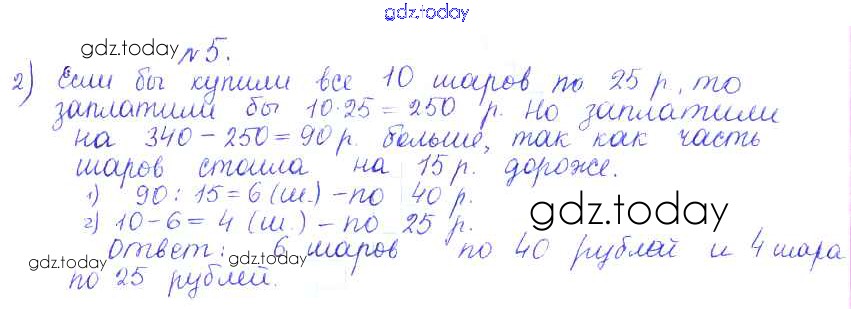 gdz.today
gdz.today № 5.
2) Если бы купили все 10 шаров по 25 р, то
заплатили бы 10·25=250 р. Но заплатили
на 340-250=90 р. больше, так как часть
шаров стоила на 15 р. дороже.
1) 90:15=6 (ш.) - по 40 р.
2) 10-6=4 (ш.) - по 25 р.
gdz.today
Ответ: 6 шаров по 40 рублей и 4 шара
gdz.today gdz.today
по 25 рублей.